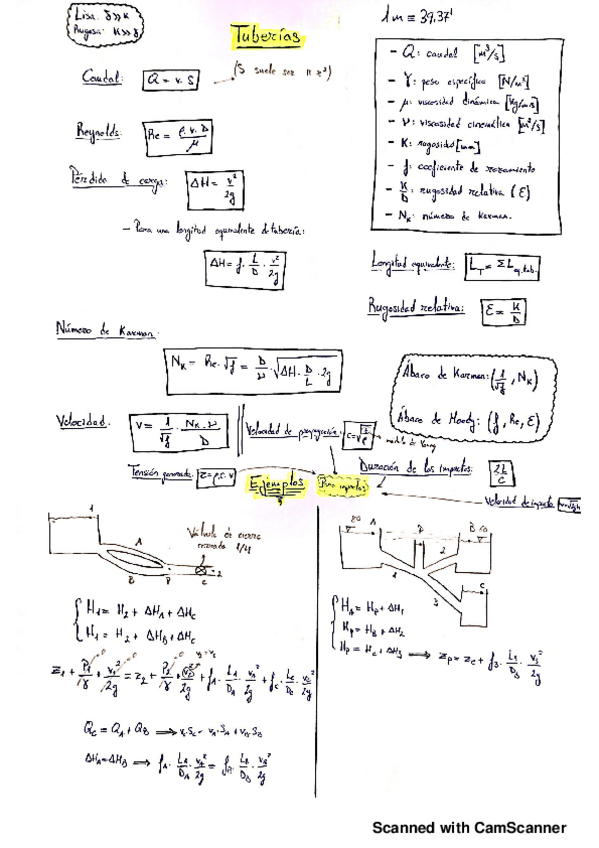 Lisa: δ>>K
Rugosa: K>>δ
Tuberías
1m ≡ 39,37'
Caudal: Q = v·S (S suele ser π r²)
Reynolds: Re = ρ·v·D/μ
Pérdida de carga: ΔH = v²/2g
- Para una longitud equivalente de tubería:
ΔH = f · L/D · v²/2g
- Q: caudal [m³/s]
- γ: peso específico [N/m³]
- μ: viscosidad dinámica [kg/m·s]
- ν: viscosidad cinemática [m²/s]
- K: rugosidad [mm]
- f: coeficiente de rozamiento
- K/D: rugosidad relativa (ε)
- Nk: número de Karman.
Longitud equivalente: L_T = ΣL eq.tub.
Rugosidad relativa: ε = K/D
Número de Karman:
Nk = Re·√f = D/ν · √(ΔH · D/L · 2g)
Ábaco de Karman: (1/√f, Nk)
Ábaco de Moody: (f, Re, ε)
Velocidad: V = 1/√f · Nk·ν/D
Velocidad de propagación:
Tensión generada: τ = ρ·c·v
Duración de los impactos: 2L/c
Ejemplos
Velocidad de impacto
1
A
B
P
C
2
Válvula de cierre
H1 = H2 + ΔHA + ΔHC
H1 = H2 + ΔHB + ΔHC
z1 + P1/γ + v1²/2g = z2 + P2/γ + v2²/2g + fA · LA/DA · vA²/2g + fC · LC/DC · vC²/2g
QC = QA + QB ⟹ vC·SC = vA·SA + vB·SB
ΔHA = ΔHB ⟹ fA · LA/DA · vA²/2g = fB · LB/DB · vB²/2g
A
P
B
1
2
3
C
HA = HP + ΔH1
HP = HB + ΔH2
HP = HC + ΔH3 ⟶ zP = zC + f3 · L3/D3 · v3²/2g
Scanned with CamScanner